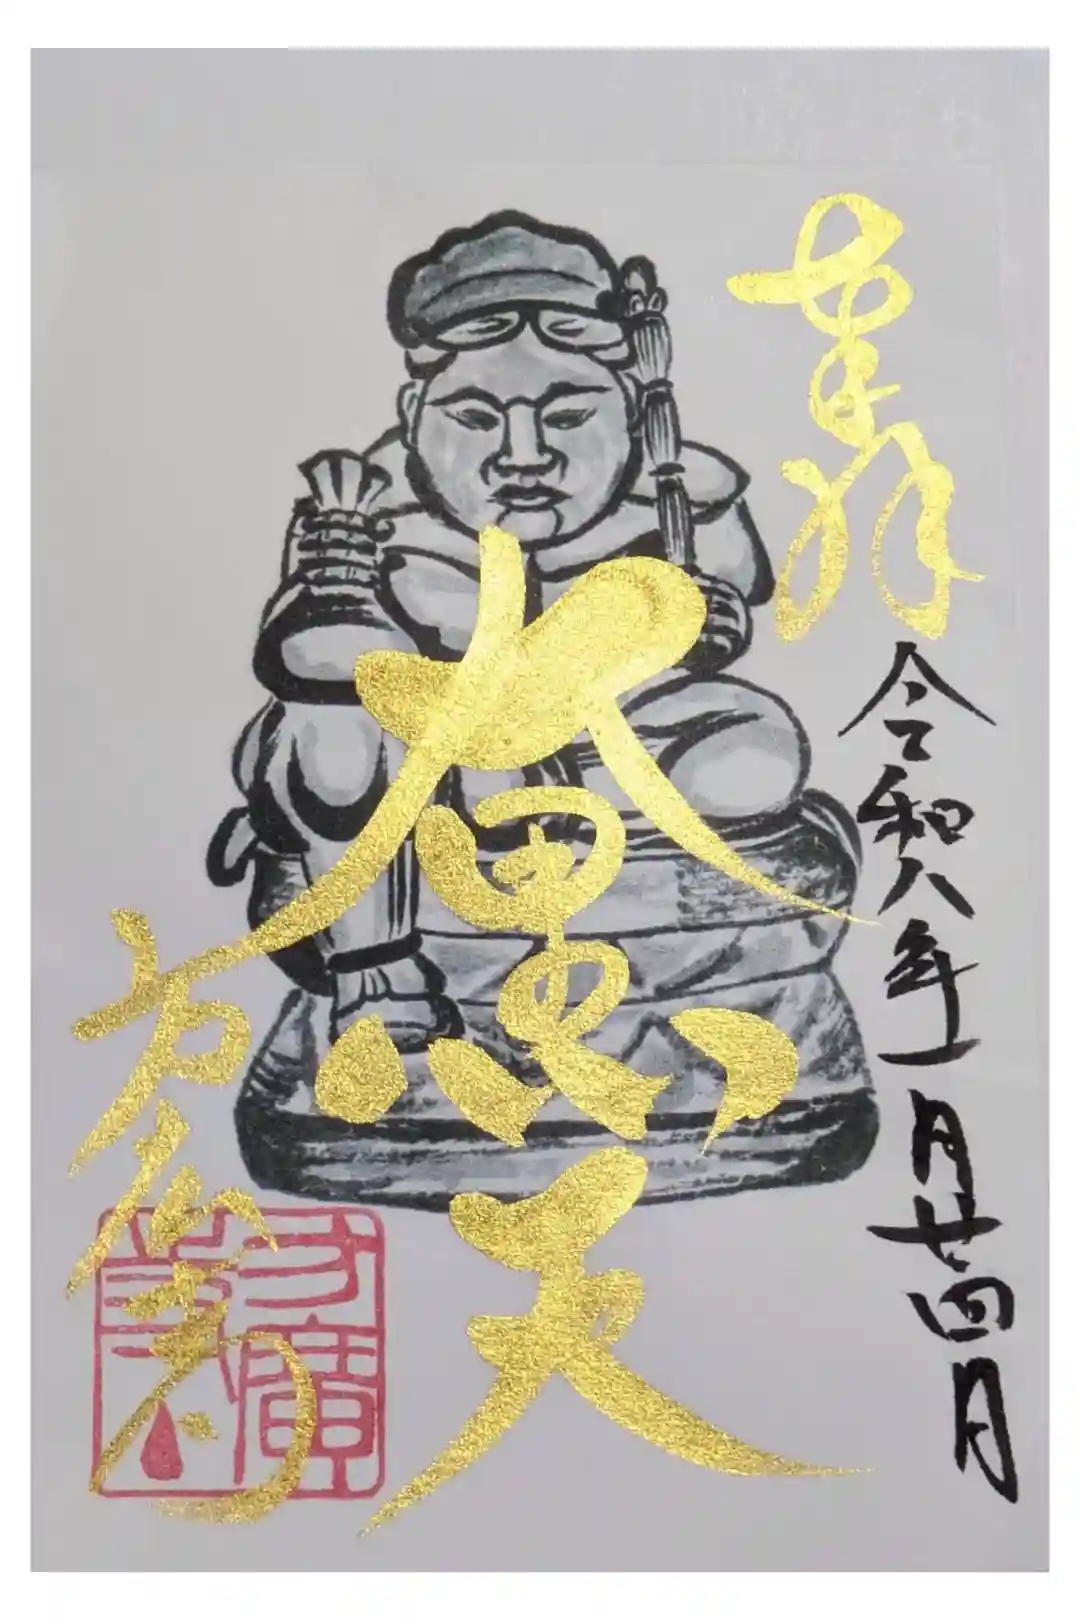 奉拝
令和八年一月廿四日
大黒天
方広寺